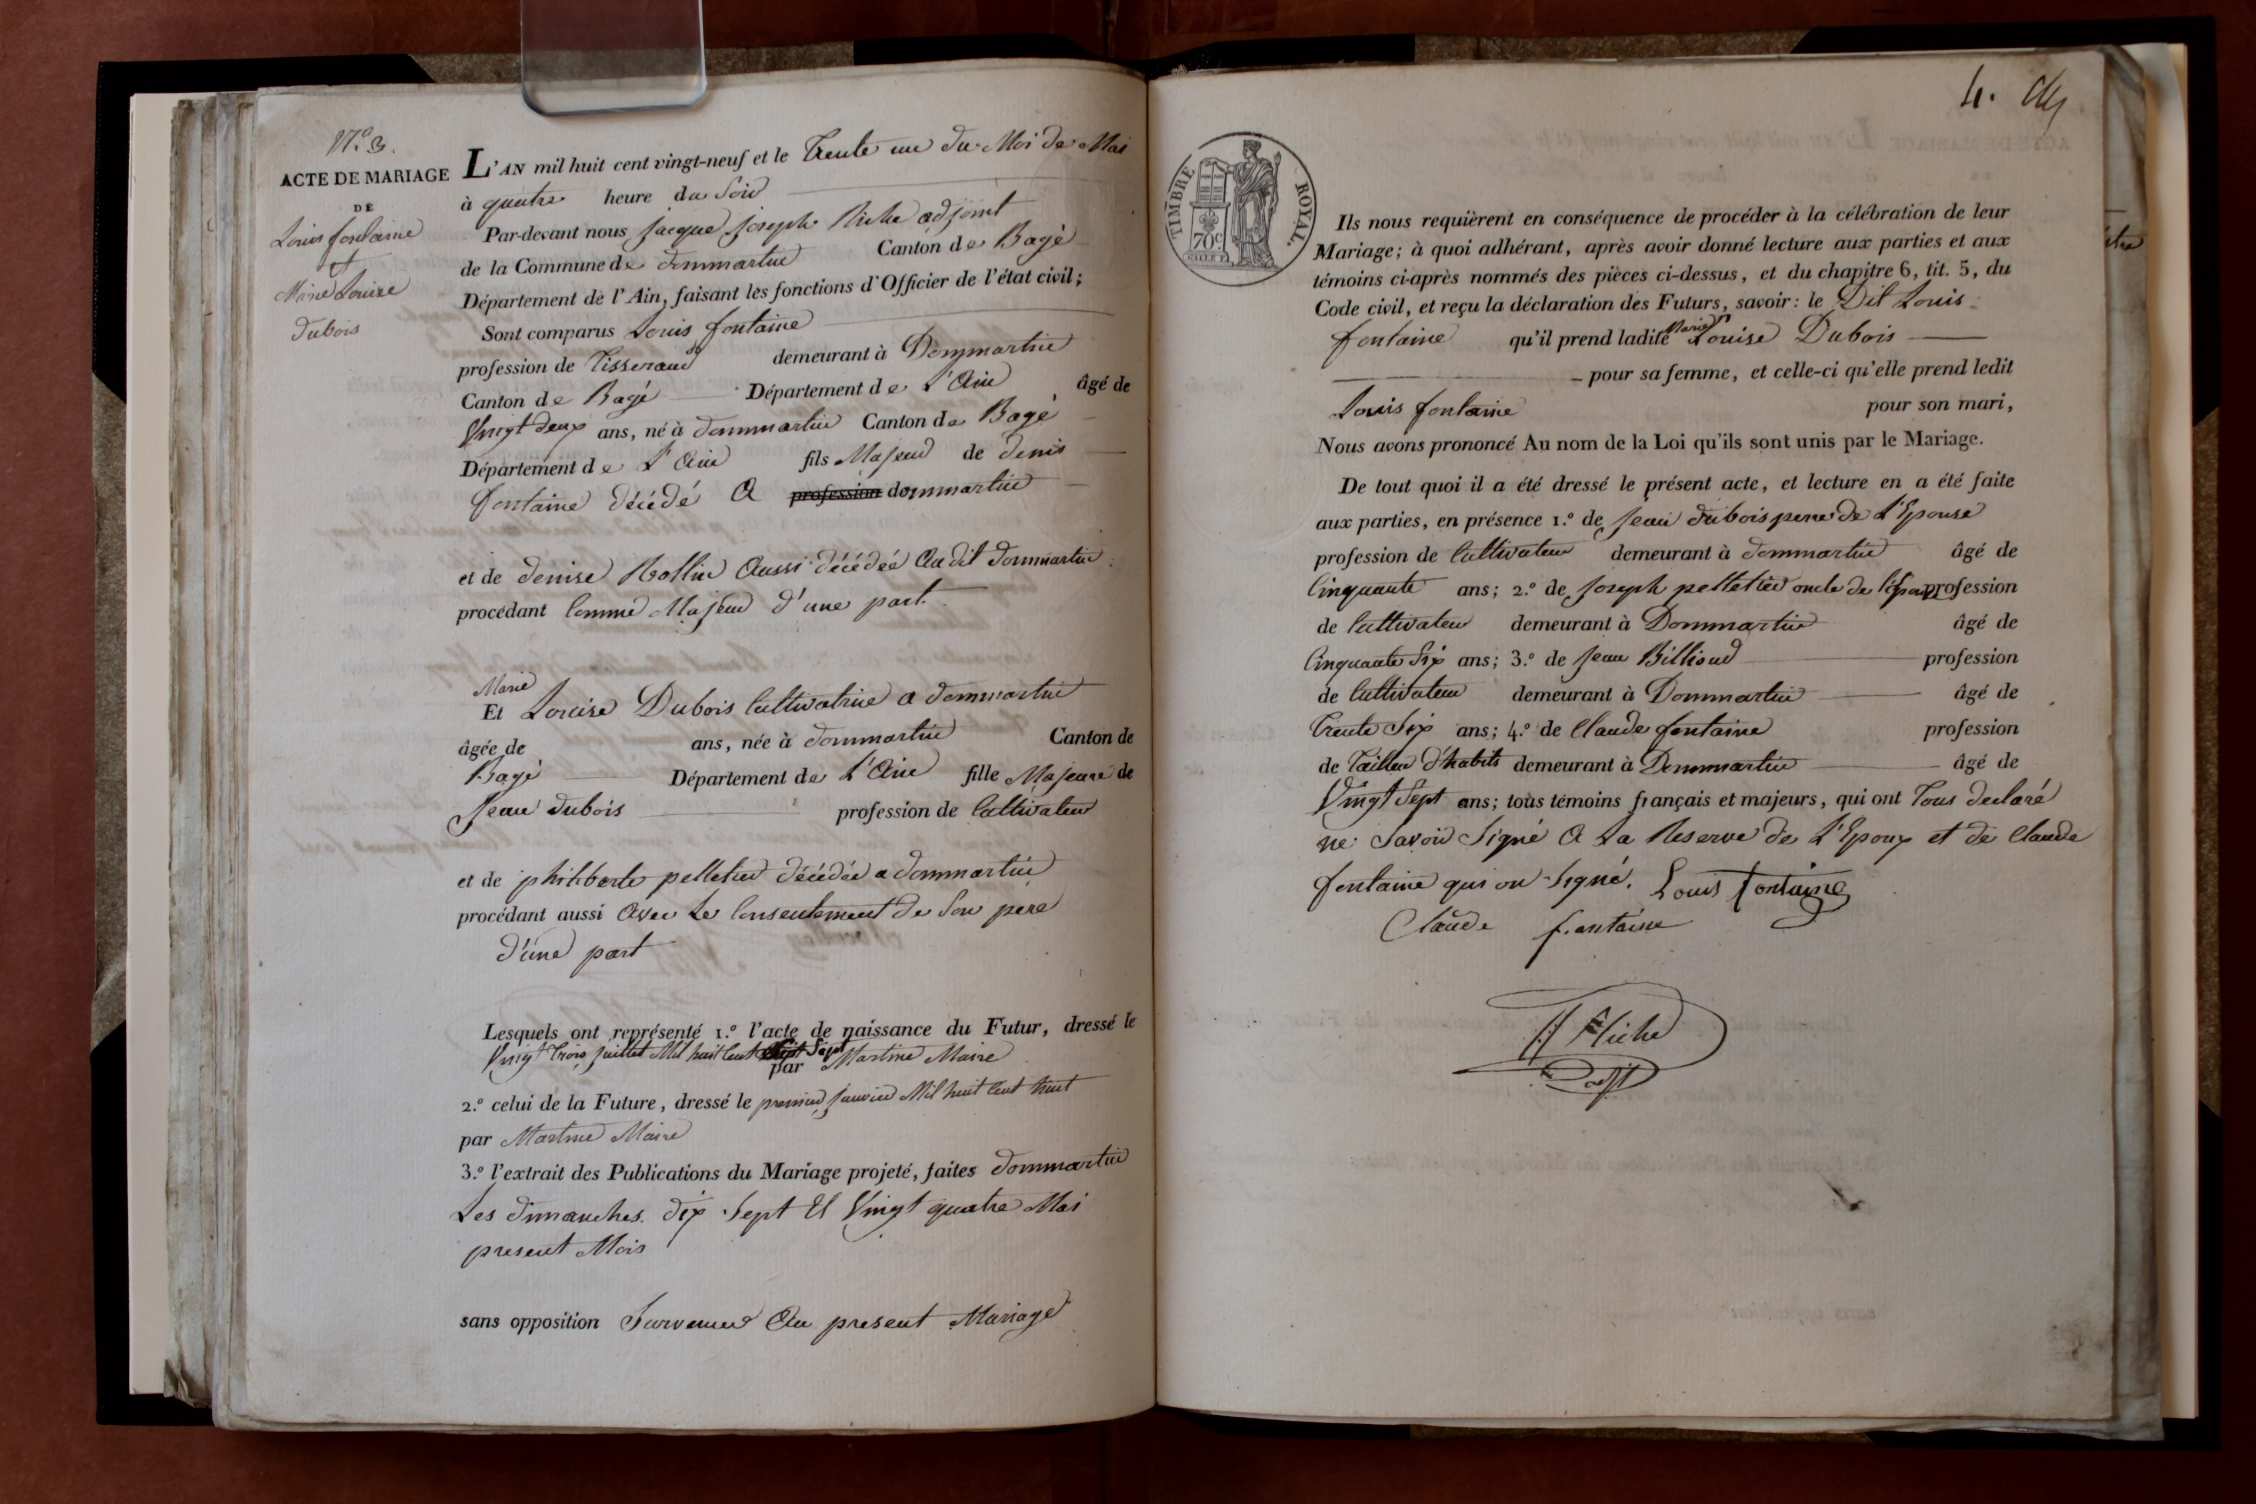 N.° 3.
ACTE DE MARIAGE
DE
Louis fontaine
et
Marie Louise
dubois
L'AN mil huit cent vingt-neuf et le Trente un du Moi de Mai
à quatre heure du Soir
Par-devant nous Jacque Joseph Riche adjoint
de la Commune de dommartin Canton de Bagé
Département de l'Ain, faisant les fonctions d'Officier de l'état civil;
Sont comparus Louis fontaine
profession de Tisserand demeurant à Dommartin
Canton de Bagé Département de L'Ain âgé de
Vingt deux ans, né à dommartin Canton de Bagé
Département de L'Ain fils Majeur de denis
fontaine décédé A profession dommartin
et de denise Rollin Aussi décédée Audit dommartin
procédant Comme Majeur d'une part
Marie
Et Louise Dubois Cultivatrice a dommartin
âgée de ans, née à dommartin Canton de
Bagé Département de L'Ain fille Majeure de
Jean dubois profession de Cultivateur
et de philiberte pelletier décédée a dommartin
procédant aussi Avec Le Consentement de Son pere
d'une part
Lesquels ont représenté 1.° l'acte de naissance du Futur, dressé le
Vingt Trois Juillet Mil huit Cent Sept
par Martine Maire
2.° celui de la Future, dressé le premier Janvier Mil huit Cent huit
par Martine Maire
3.° l'extrait des Publications du Mariage projeté, faites dommartin
Les dimanches dix Sept Et Vingt quatre Mai
present Mois
sans opposition Survenue Au present Mariage
4.
TIMBRE ROYAL.
70c
Ils nous requièrent en conséquence de procéder à la célébration de leur
Mariage; à quoi adhérant, après avoir donné lecture aux parties et aux
témoins ci-après nommés des pièces ci-dessus, et du chapitre 6, tit. 5, du
Code civil, et reçu la déclaration des Futurs, savoir: le Dit Louis
fontaine qu'il prend ladite Marie Louise Dubois
pour sa femme, et celle-ci qu'elle prend ledit
Louis fontaine pour son mari,
Nous avons prononcé Au nom de la Loi qu'ils sont unis par le Mariage.
De tout quoi il a été dressé le présent acte, et lecture en a été faite
aux parties, en présence 1.° de Jean dubois pere de L'Epouse
profession de Cultivateur demeurant à dommartin âgé de
Cinquante ans; 2.° de Joseph pelletier oncle de l'épouse profession
de Cultivateur demeurant à Dommartin âgé de
Cinquante Six ans; 3.° de Jean Billioud profession
de Cultivateur demeurant à Dommartin âgé de
Trente Six ans; 4.° de Claude fontaine profession
de Tailleur d'habits demeurant à Dommartin âgé de
Vingt Sept ans; tous témoins français et majeurs, qui ont Tous declaré
ne Savoir Signé A La Reserve de L'Epoux et de Claude
fontaine qui on Signé. Louis fontaine
Claude fontaine
Riche
adjt